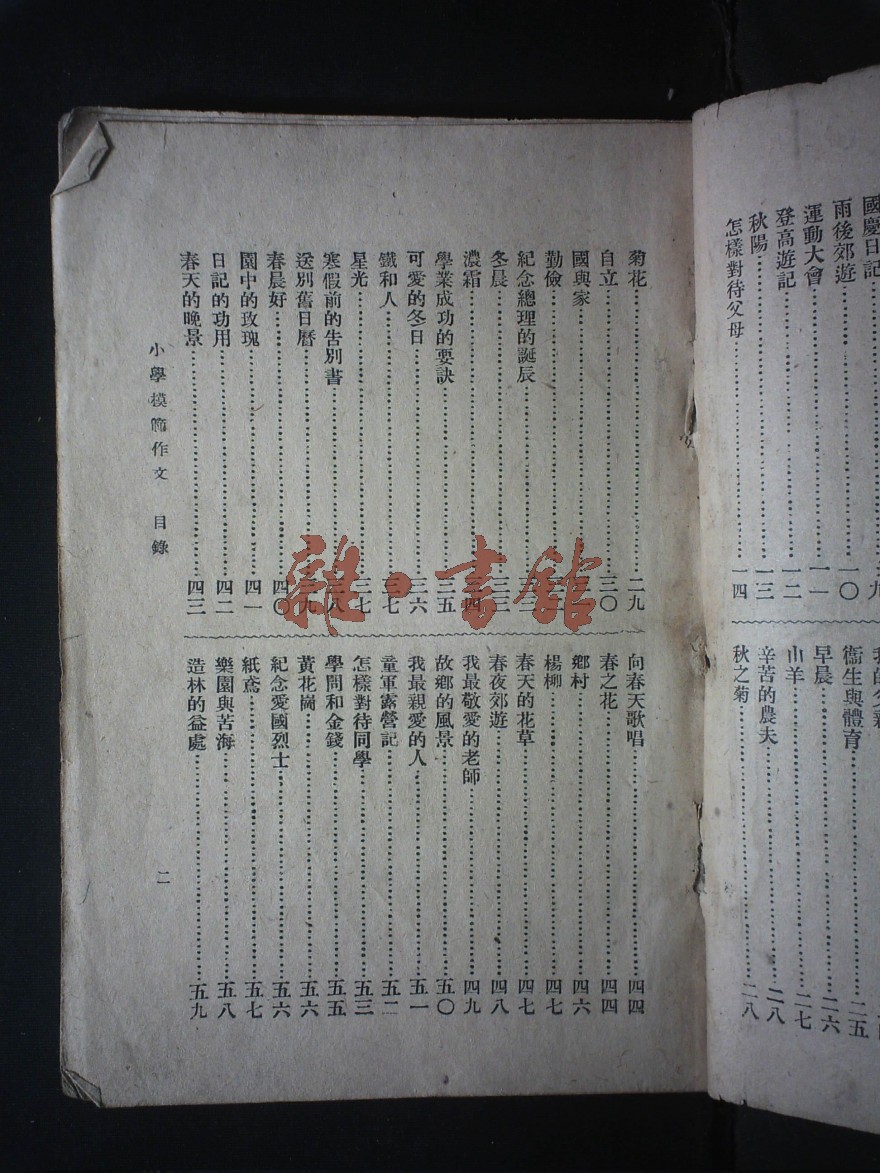 國慶日記
雨後郊遊……一〇
運動大會……一一
登高遊記……一二
秋陽……一三
怎樣對待父母……一四
衞生與體育……二五
早晨……二六
小羊……二七
辛苦的農夫……二八
秋之菊……二八
菊花……二九
自立……三〇
國與家……
勤儉……
紀念總理的誕辰……
冬晨……三三
濃霜……三四
學業成功的要訣……三五
可愛的冬日……三六
鐵和人……三七
星光……三七
寒假前的告別書……三八
送別舊日曆……三九
春晨好……四〇
園中的玫瑰……四一
日記的功用……四二
春天的晚景……四三
向春天歌唱……四四
春之花……四四
鄉村……四六
楊柳……四七
春天的花草……四七
春夜郊遊……四八
我最敬愛的老師……四九
故鄉的風景……五〇
我最親愛的人……五一
童軍露營記……五二
怎樣對待同學……五三
學問和金錢……五五
黃花崗……五六
紀念愛國烈士……五六
紙鳶……五七
樂園與苦海……五八
造林的益處……五九
小學模範作文 目錄 二
雜·書館